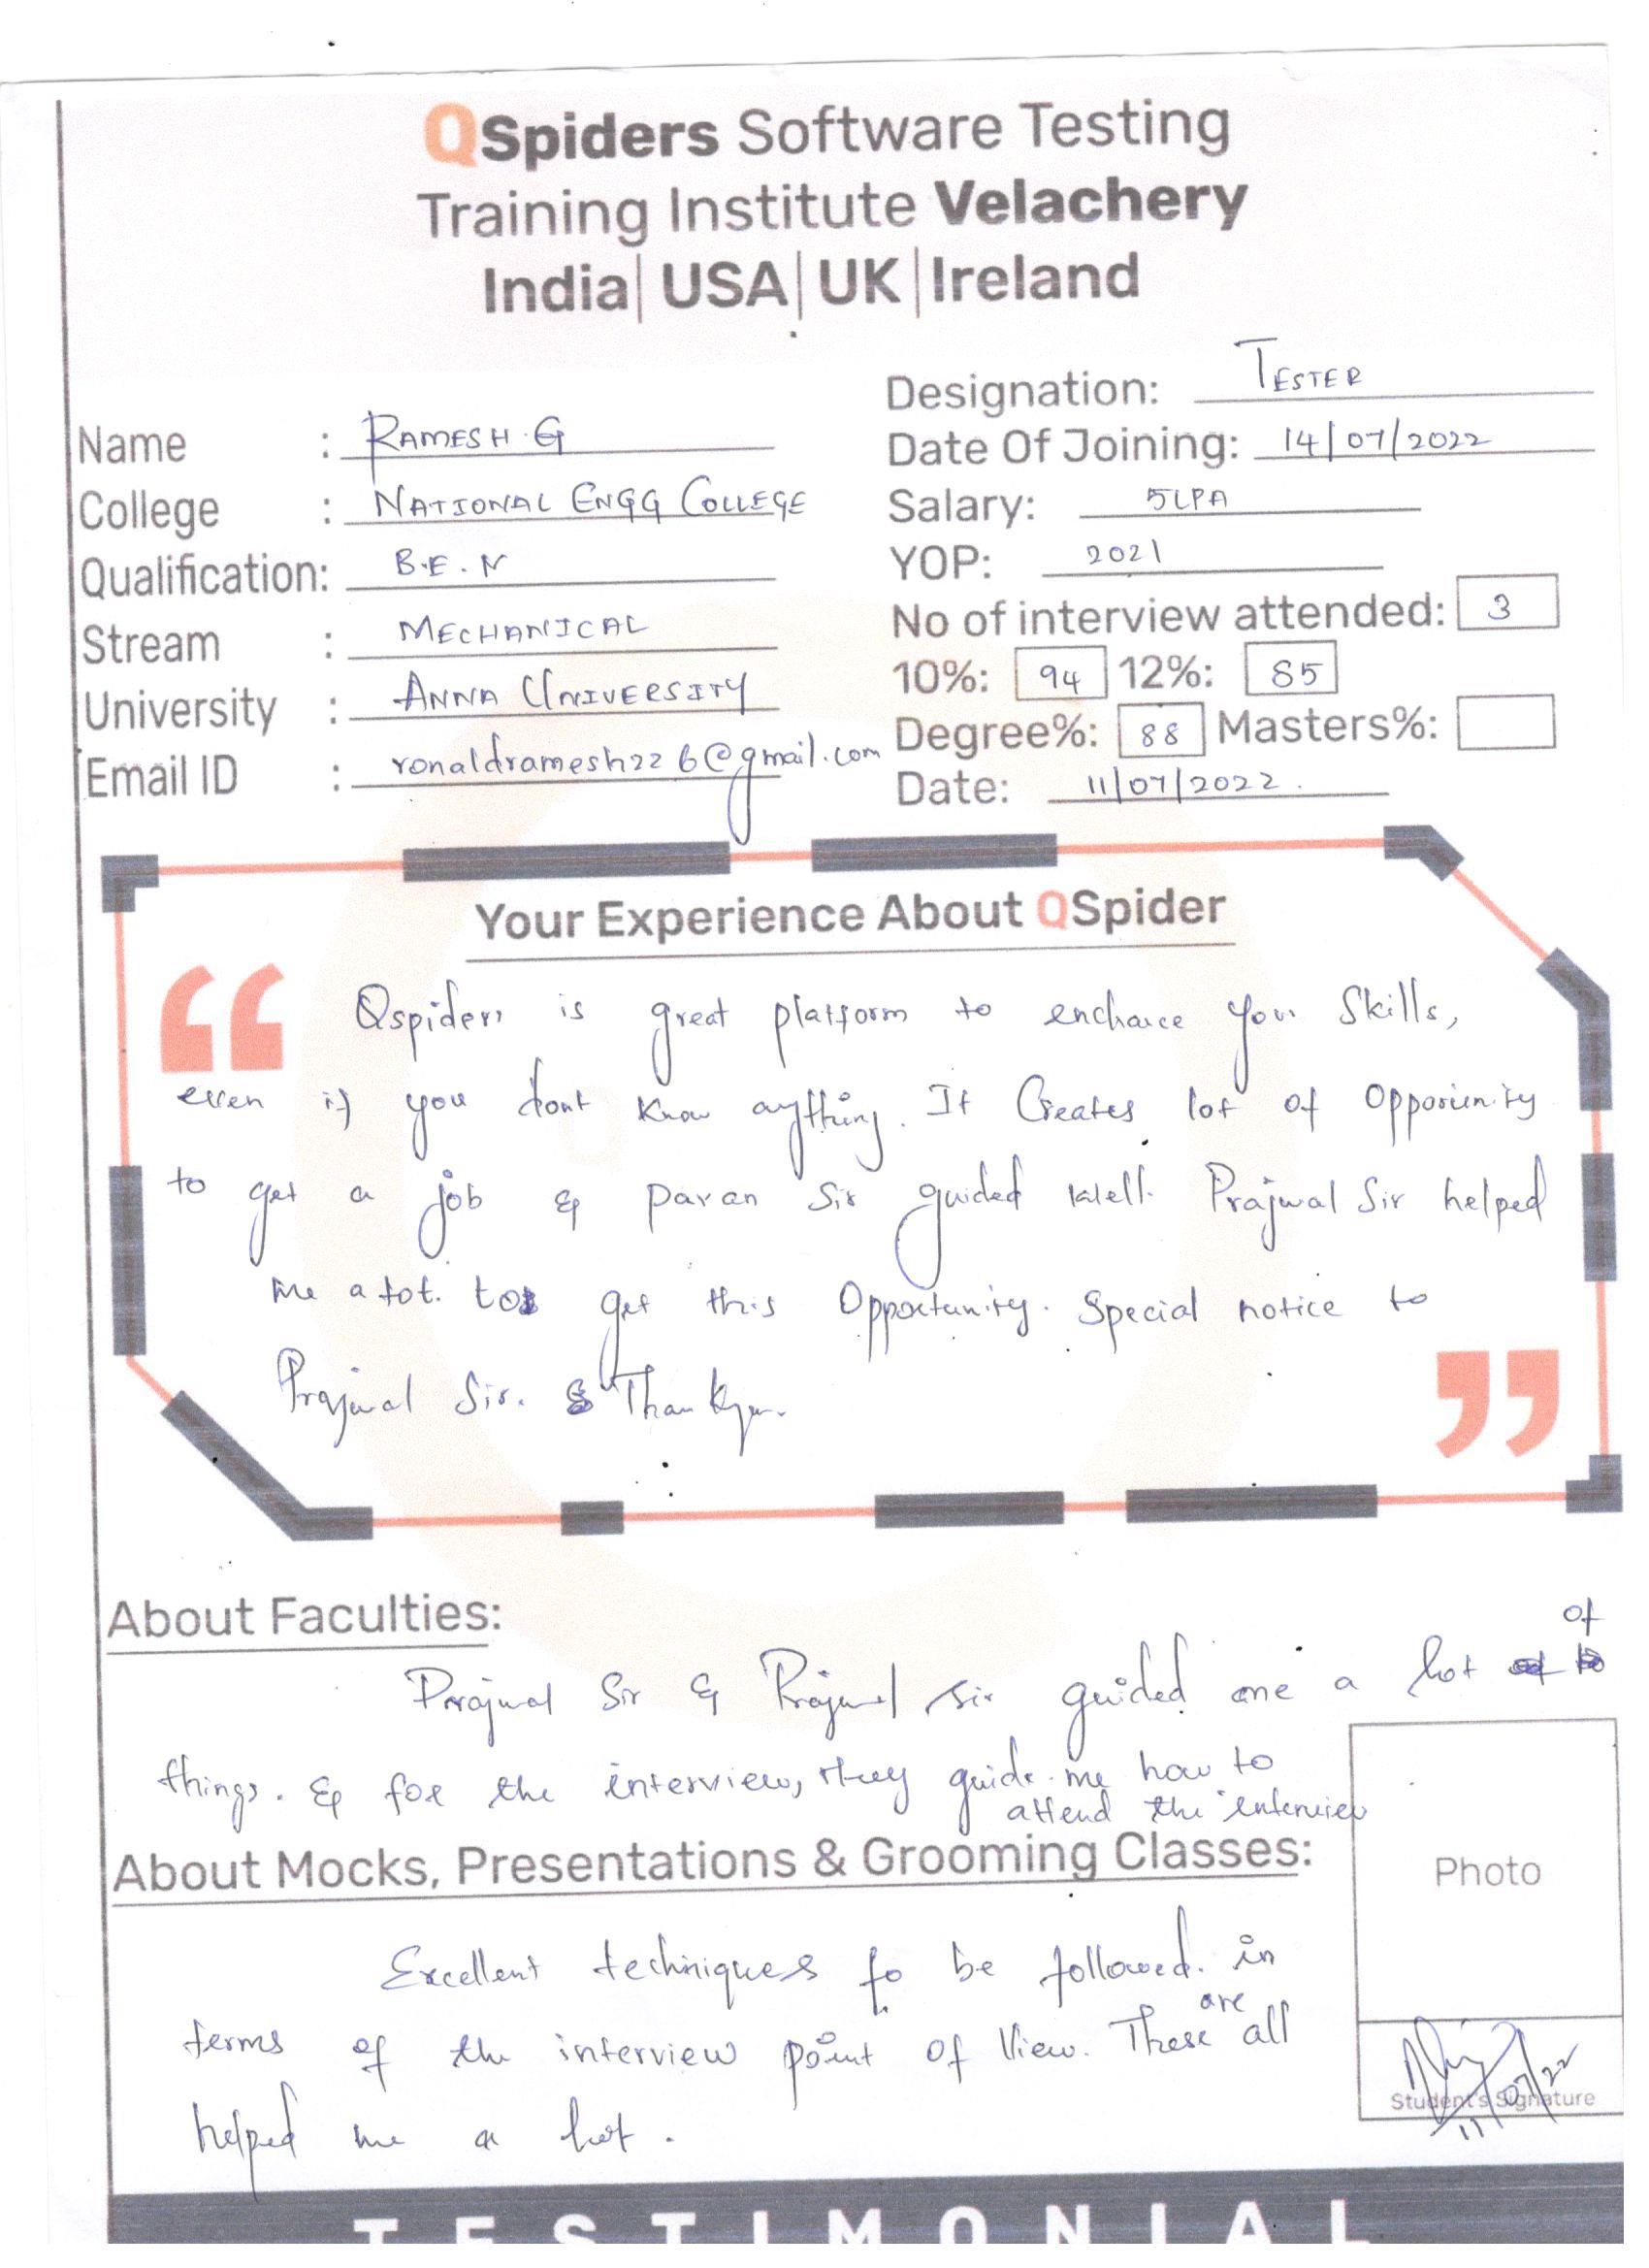 QSpiders Software Testing
Training Institute Velachery
India| USA| UK| Ireland
Name : RAMESH.G
College : NATIONAL ENGG COLLEGE
Qualification: B.E. N
Stream : MECHANICAL
University : ANNA UNIVERSITY
Email ID : ronaldramesh226@gmail.com
Designation: TESTER
Date Of Joining: 14/07/2022
Salary: 5LPA
YOP: 2021
No of interview attended: 3
10%: 94 12%: 85
Degree%: 88 Masters%:
Date: 11/07/2022.
Your Experience About QSpider
“
Qspiders is great platform to enchance your Skills,
even if you dont know anything. It Creates lot of Opportunity
to get a job & pavan Sir guided well. Prajwal Sir helped
me a lot. to get this Opportunity. Special notice to
Prajwal Sir. & Thankyou.
”
About Faculties:
Prajwal Sir & Prajwal sir guided me a lot of
things. & for the interview, they guide me how to
attend the interview
About Mocks, Presentations & Grooming Classes:
Excellent techniques to be followed. in
terms of the interview point of View. These are all
helped me a lot.
Photo
Student's Signature
11/07/22
TESTIMONIAL